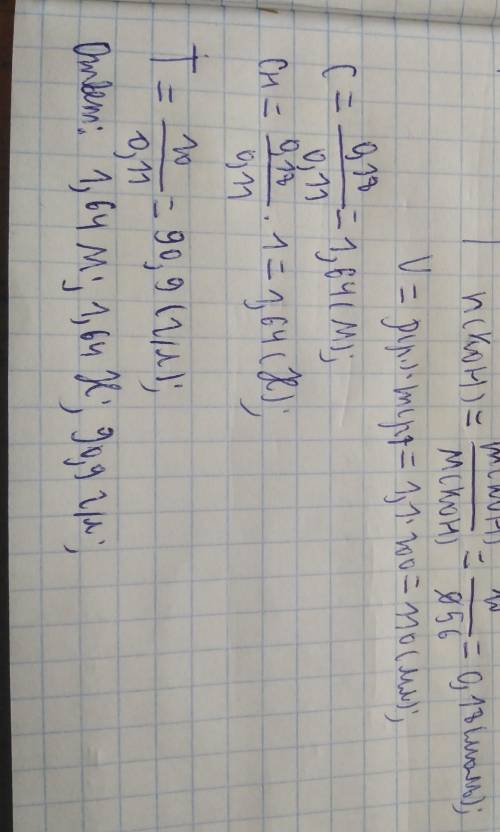 n(KOH) = m(KOH) / M(KOH) = 10 / 56 = 0,18 (моль);
V = ρ(р) · m(р) = 1,1 · 100 = 110 (мл);
C = 0,18 / 0,11 = 1,64 (М);
Cн = 0,18 / 0,11 · 1 = 1,64 (Н);
T = 10 / 0,11 = 90,9 (г/л);
Ответ: 1,64 М; 1,64 Н; 90,9 г/л;